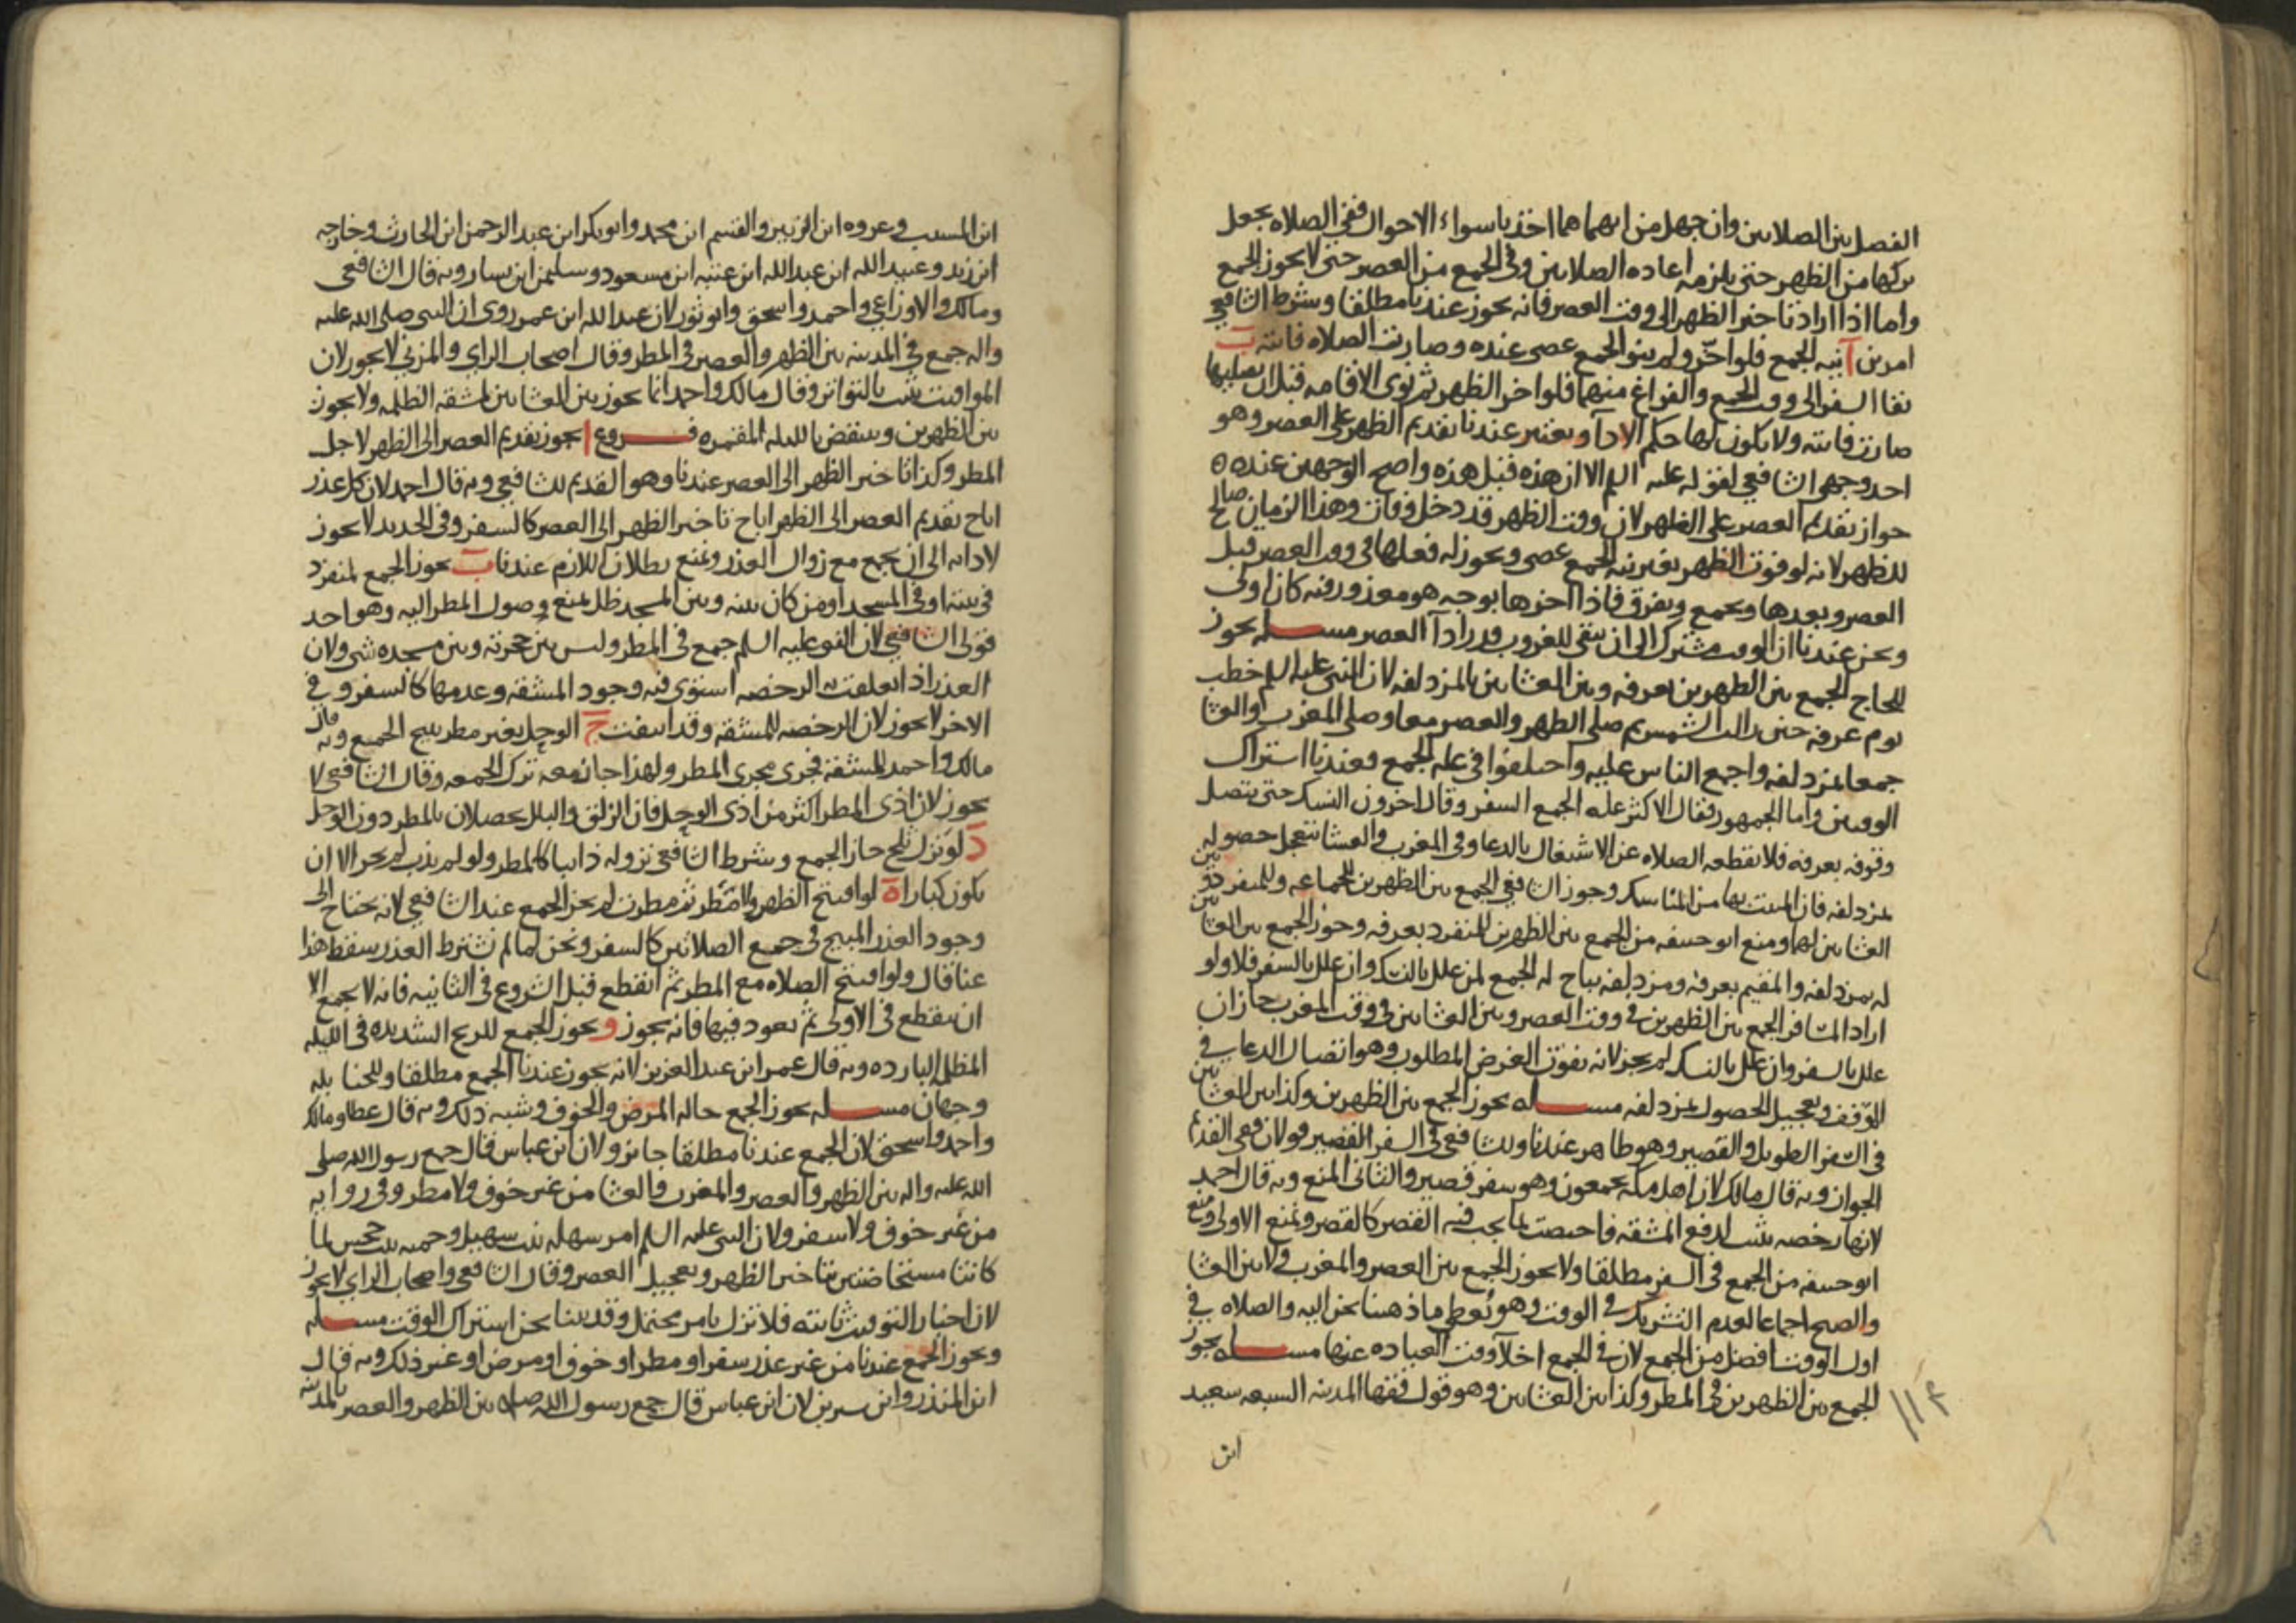 الفصل بين الصلاتين وان جهل من ايهما هما اخذ باسواء الاحوال ففي الصلاه يجعل
تركها من الظهر حتى يلزمه اعاده الصلاتين وفي الجمع من العصر حتى لا يجوز الجمع
واما اذا اراد تاخير الظهر الى وقت العصر فانه يجوز عندنا مطلقا وشرط الشافعي
امرين آ نيه الجمع فلو اخر ولم ينو الجمع عصى عنده وصارت الصلاه فائته ب
بقاا السفر الى وقت الجمع والفراغ منهما فلو اخر الظهر ثم نوى الاقامه قبل ان يصليها
صارت فائته ولا يكون لها حكم الادآ ويعتبر عندنا تقديم الظهر على العصر وهو
احد وجهي الشافعي لقوله عليه السلم الا ان هذه قبل هذه واصح الوجهين عنده
جواز تقديم العصر على الظهر لان وقت الظهر قد دخل وفات وهذا الزمان صالح
للظهر لانه لو فوت الظهر بغير نيه الجمع عصى ويجوز له فعلها في وقت العصر قبل
العصر وبعدها ويجمع ويفرق فاذا اخرها بوجه هو معذور فيه كان اولى
ونحن عندنا ان الوقت مشترك الى ان يبقى للغروب قدر ادآ العصر مسله يجوز
للحاج الجمع بين الظهرين بعرفه وبين العشائين بالمزدلفه لان النبي عليه السلم خطب
يوم عرفه حين زالت الشمس ثم صلى الظهر والعصر معا وصلى المغرب والعشا
جمعا بمزدلفه واجمع الناس عليه واختلفوا في عله الجمع فعندنا اشتراك
الوقتين واما الجمهور فقال الاكثر عله الجمع السفر وقال اخرون النسك حتى يتصل
وقوفه بعرفه فلا يقطعه الصلاه عن الاشتغال بالدعا وفي المغرب والعشا يتعجل حصوله
بمزدلفه فان المبيت بها من المناسك وجوز الشافعي الجمع بين الظهرين للجماعه وللمنفرد وبين
العشائين لها ومنع ابو حنيفه من الجمع بين الظهرين للمنفرد بعرفه وجوز الجمع بين العشائين
له بمزدلفه والمقيم بعرفه ومزدلفه يباح له الجمع لمن علل بالنسك وان علل بالسفر فلا ولو
اراد المسافر الجمع بين الظهرين في وقت العصر وبين العشائين في وقت المغرب جاز ان
علل بالسفر وان علل بالنسك لم يجز لانه يفوت الغرض المطلوب وهو اتصال الدعا في
الموقف وتعجيل الحصول بمزدلفه مسله يجوز الجمع بين الظهرين وكذا بين العشائين
في السفر الطويل والقصير وهو ظاهر عندنا وللشافعي في السفر القصير قولان ففي القديم
الجواز وبه قال مالك لان اهل مكه يجمعون وهو سفر قصير والثاني المنع وبه قال احمد
لانها رخصه تثبت لدفع المشقه فاختصت بما يجب فيه القصر كالقصر ونمنع الاولى ومنع
ابو حنيفه من الجمع في السفر مطلقا ولا يجوز الجمع بين العصر والمغرب ولا بين العشا
والصبح اجماعا لعدم التشريك في الوقت وهو يعطي ما ذهبنا نحن اليه والصلاه في
اول الوقت افضل من الجمع لان في الجمع اخلآ وقت العباده عنها مسله يجوز
الجمع بين الظهرين في المطر وكذا بين العشائين وهو قول فقها المدينه السبعه سعيد
ابن
١١٣
ابن المسيب وعروه ابن الزبير والقسم ابن محمد وابو بكر ابن عبد الرحمن ابن الحارث وخارجه
ابن زيد وعبيد الله ابن عبد الله ابن عتبه ابن مسعود وسليمن ابن يسار وبه قال الشافعي
ومالك والاوزاعي واحمد واسحق وابو ثور لان عبد الله ابن عمر روى ان النبي صلى الله عليه
واله جمع في المدينه بين الظهر والعصر في المطر وقال اصحاب الراي والمزني لا يجوز لان
المواقيت تثبت بالتواتر وقال مالك واحمد انما يجوز بين العشائين لمشقه الظلمه ولا يجوز
بين الظهرين وينتقض بالليله المقمره فروع ا يجوز تقديم العصر الى الظهر لاجل
المطر وكذا تاخير الظهر الى العصر عندنا وهو القديم للشافعي وبه قال احمد لان كل عذر
اباح تقديم العصر الى الظهر اباح تاخير الظهر الى العصر كالسفر وفي الجديد لا يجوز
لادائه الى ان يجمع مع زوال العذر ونمنع بطلان اللازم عندنا ب يجوز الجمع لمنفرد
في بيته او في المسجد او من كان بينه وبين المسجد ظل يمنع وصول المطر اليه وهو احد
قولي الشافعي لان النبي عليه السلم جمع في المطر وليس بين حجرته وبين مسجده شي ولان
العذر اذا تعلقت به الرخصه استوى فيه وجود المشقه وعدمها كالسفر وفي
الاخر لا يجوز لان الرخصه للمشقه وقد انتفت ج الوحل بغير مطر يبيح الجمع وبه قال
مالك واحمد للمشقه فجرى مجرى المطر ولهذا جاز معه ترك الجمعه وقال الشافعي لا
يجوز لان اذى المطر اكثر من اذى الوحل فان الزلق والبلل يحصلان بالمطر دون الوحل
د لو نزل ثلج جاز الجمع وشرط الشافعي نزوله ذائبا كالمطر ولو لم يذب لم يجز الا ان
يكون كبارا ه لو افتتح الظهر ولا مطر ثم مطرت لم يجز الجمع عند الشافعي لانه يحتاج الى
وجود العذر المبيح في جميع الصلاتين كالسفر ونحن لما لم نشترط العذر سقط هذا
عنا قال ولو افتتح الصلاه مع المطر ثم انقطع قبل الشروع في الثانيه فانه لا يجمع الا
ان ينقطع في الاولى ثم يعود فيها فانه يجوز و يجوز الجمع للريح الشديده في الليله
المظلمه البارده وبه قال عمر ابن عبد العزيز لانه يجوز عندنا الجمع مطلقا وللحنابله
وجهان مسله يجوز الجمع حاله المرض والخوف وشبه ذلك وبه قال عطا ومالك
واحمد واسحق لان الجمع عندنا مطلقا جائز ولان ابن عباس قال جمع رسول الله صلى
الله عليه واله بين الظهر والعصر والمغرب والعشا من غير خوف ولا مطر وفي روايه
من غير خوف ولا سفر ولان النبي عليه السلم امر سهله بنت سهيل وحمنه بنت جحش لما
كانتا مستحاضتين بتاخير الظهر وتعجيل العصر وقال الشافعي واصحاب الراي لا يجوز
لان اخبار التوقيت ثابته فلا تترك بامر محتمل وقد بينا نحن اشتراك الوقت مسله
ويجوز الجمع عندنا من غير عذر سفر او مطر او خوف او مرض او غير ذلك وبه قال
ابن المنذر وابن سيرين لان ابن عباس قال جمع رسول الله صله بين الظهر والعصر بالمدينه